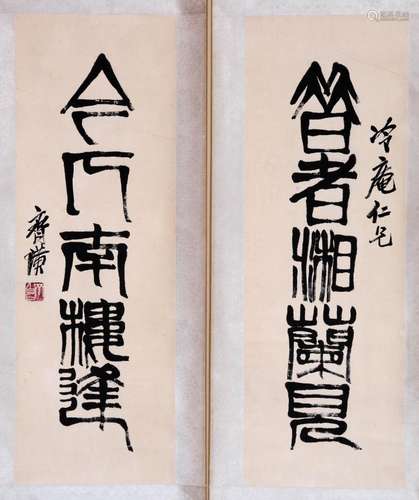 昔者湘蘭見
冷庵仁兄
今南樓逢
齊璜